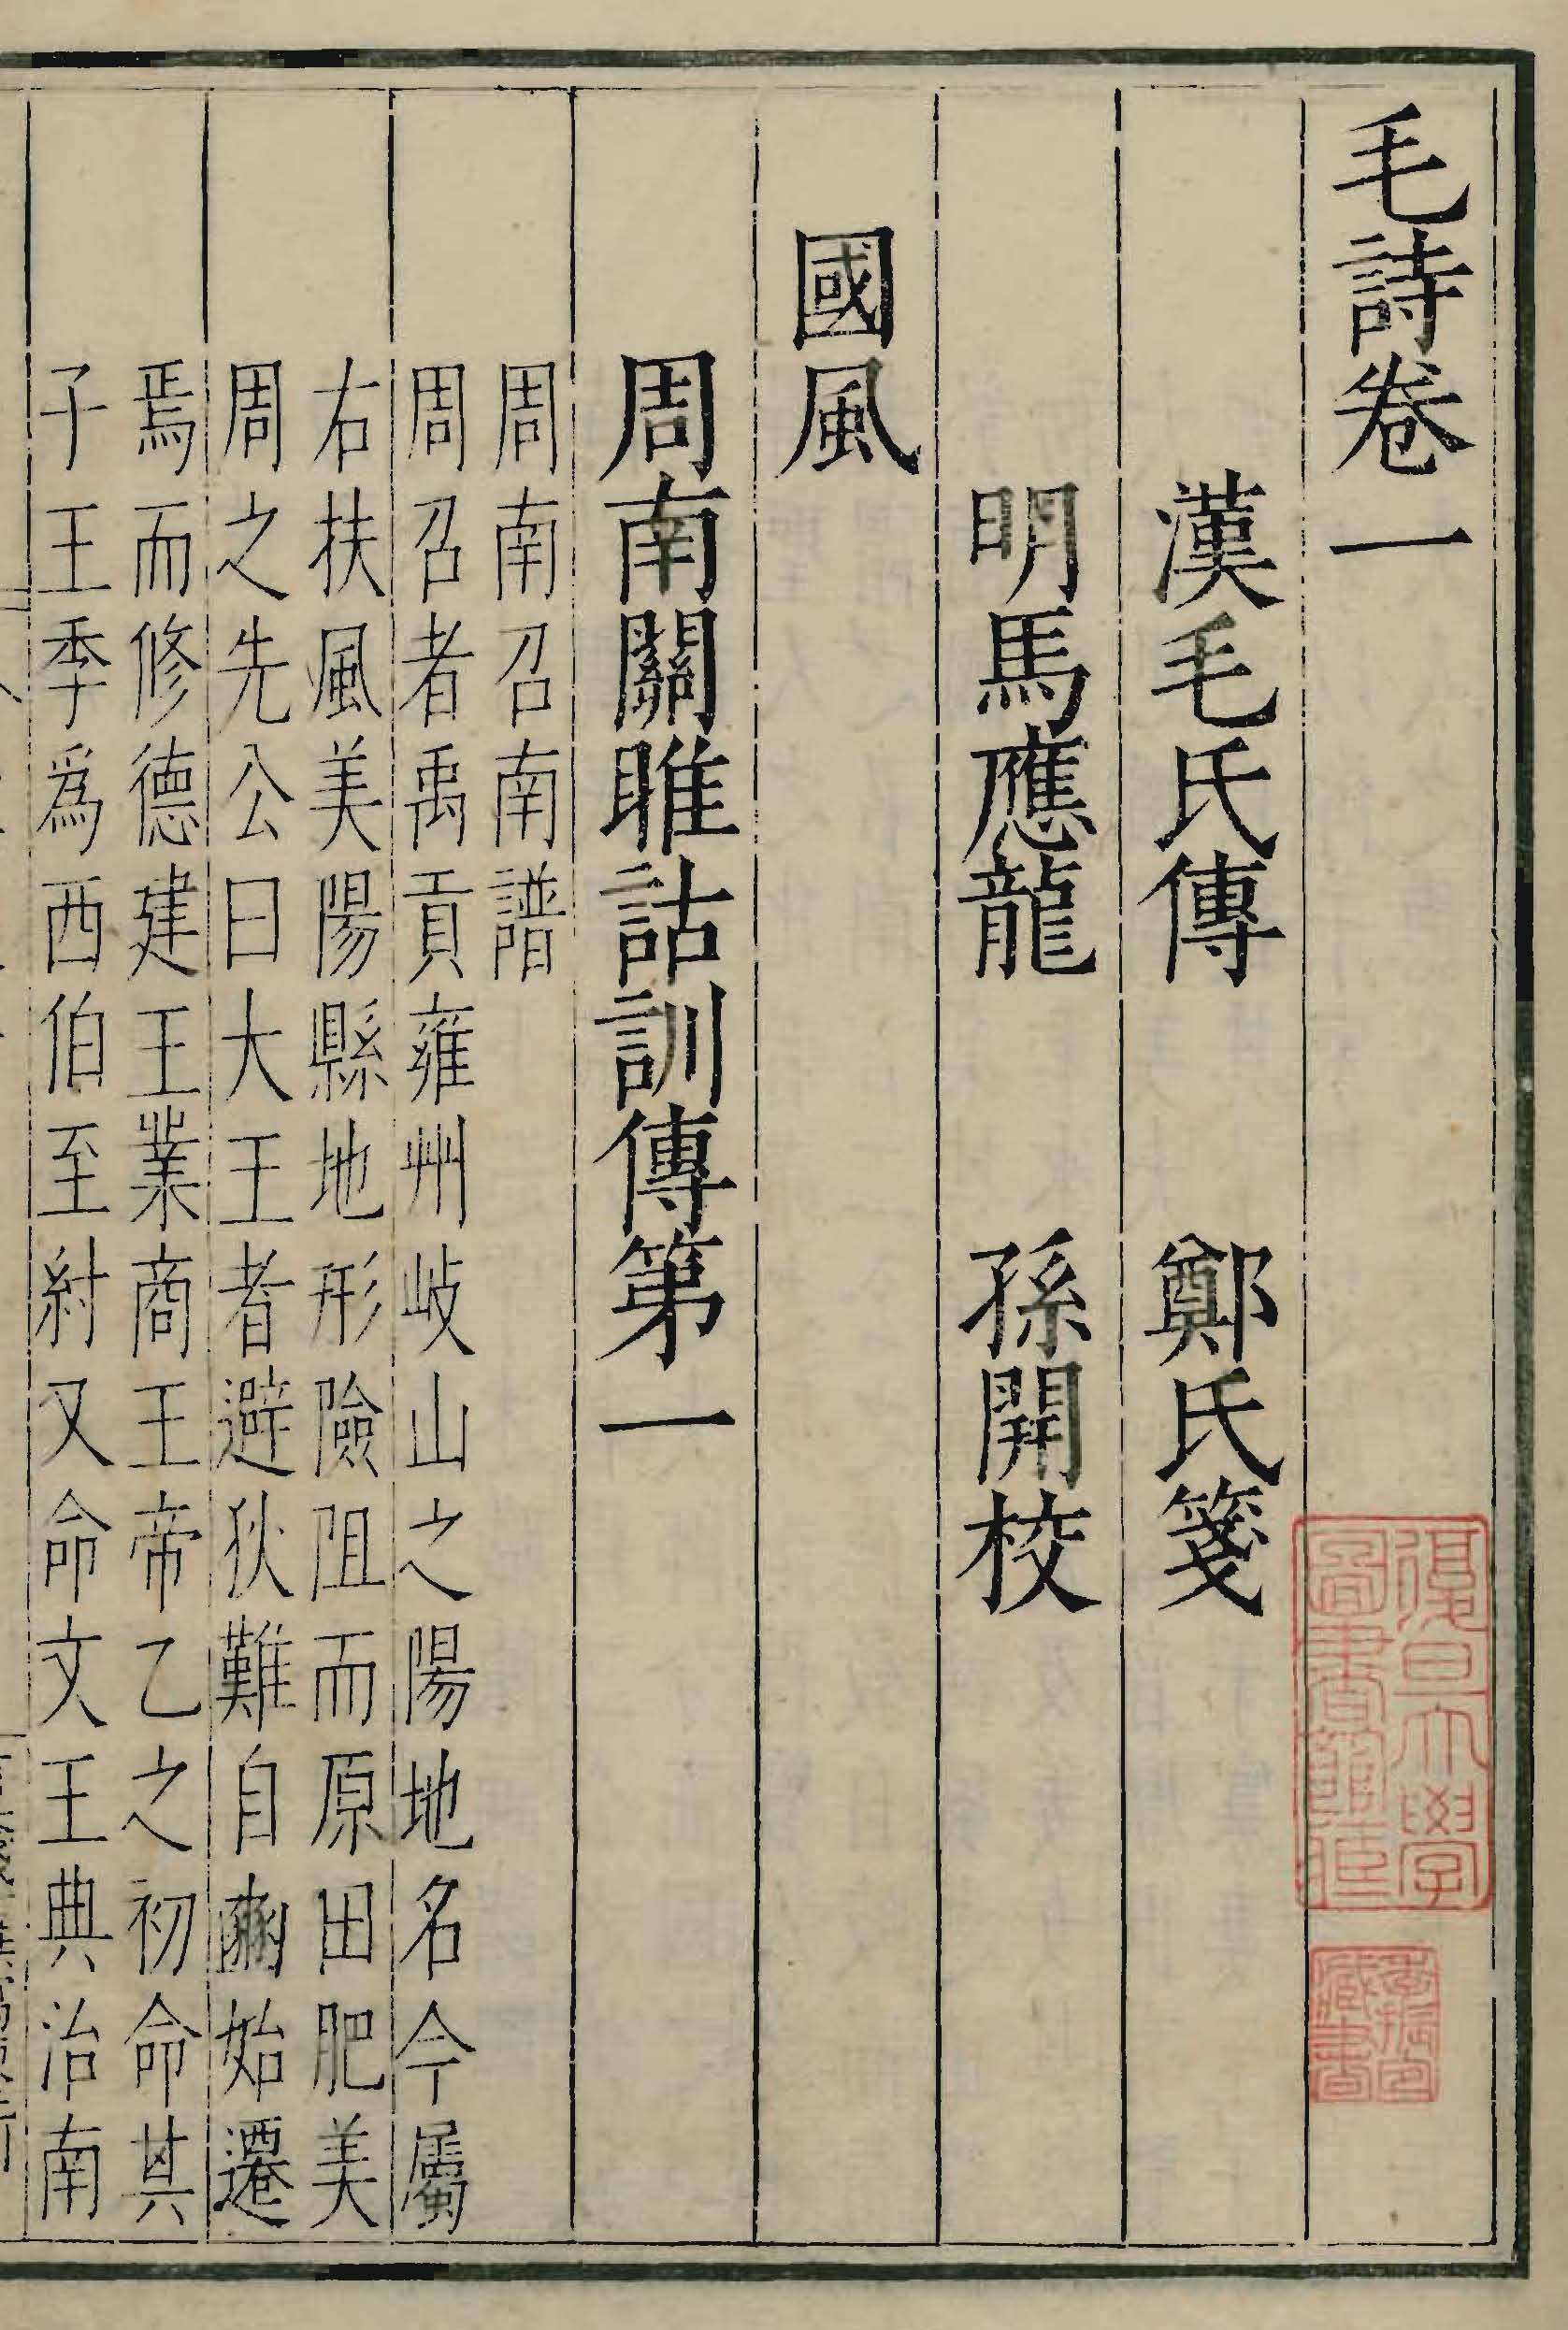 毛詩卷一
漢毛氏傳　鄭氏箋
明馬應龍　孫開校
國風
周南關雎詁訓傳第一
周南召南譜
周召者禹貢雍州岐山之陽地名今屬
右扶風美陽縣地形險阻而原田肥美
周之先公曰大王者避狄難自豳始遷
焉而修德建王業商王帝乙之初命其
子王季爲西伯至紂又命文王典治南
復旦大學
圖書館藏